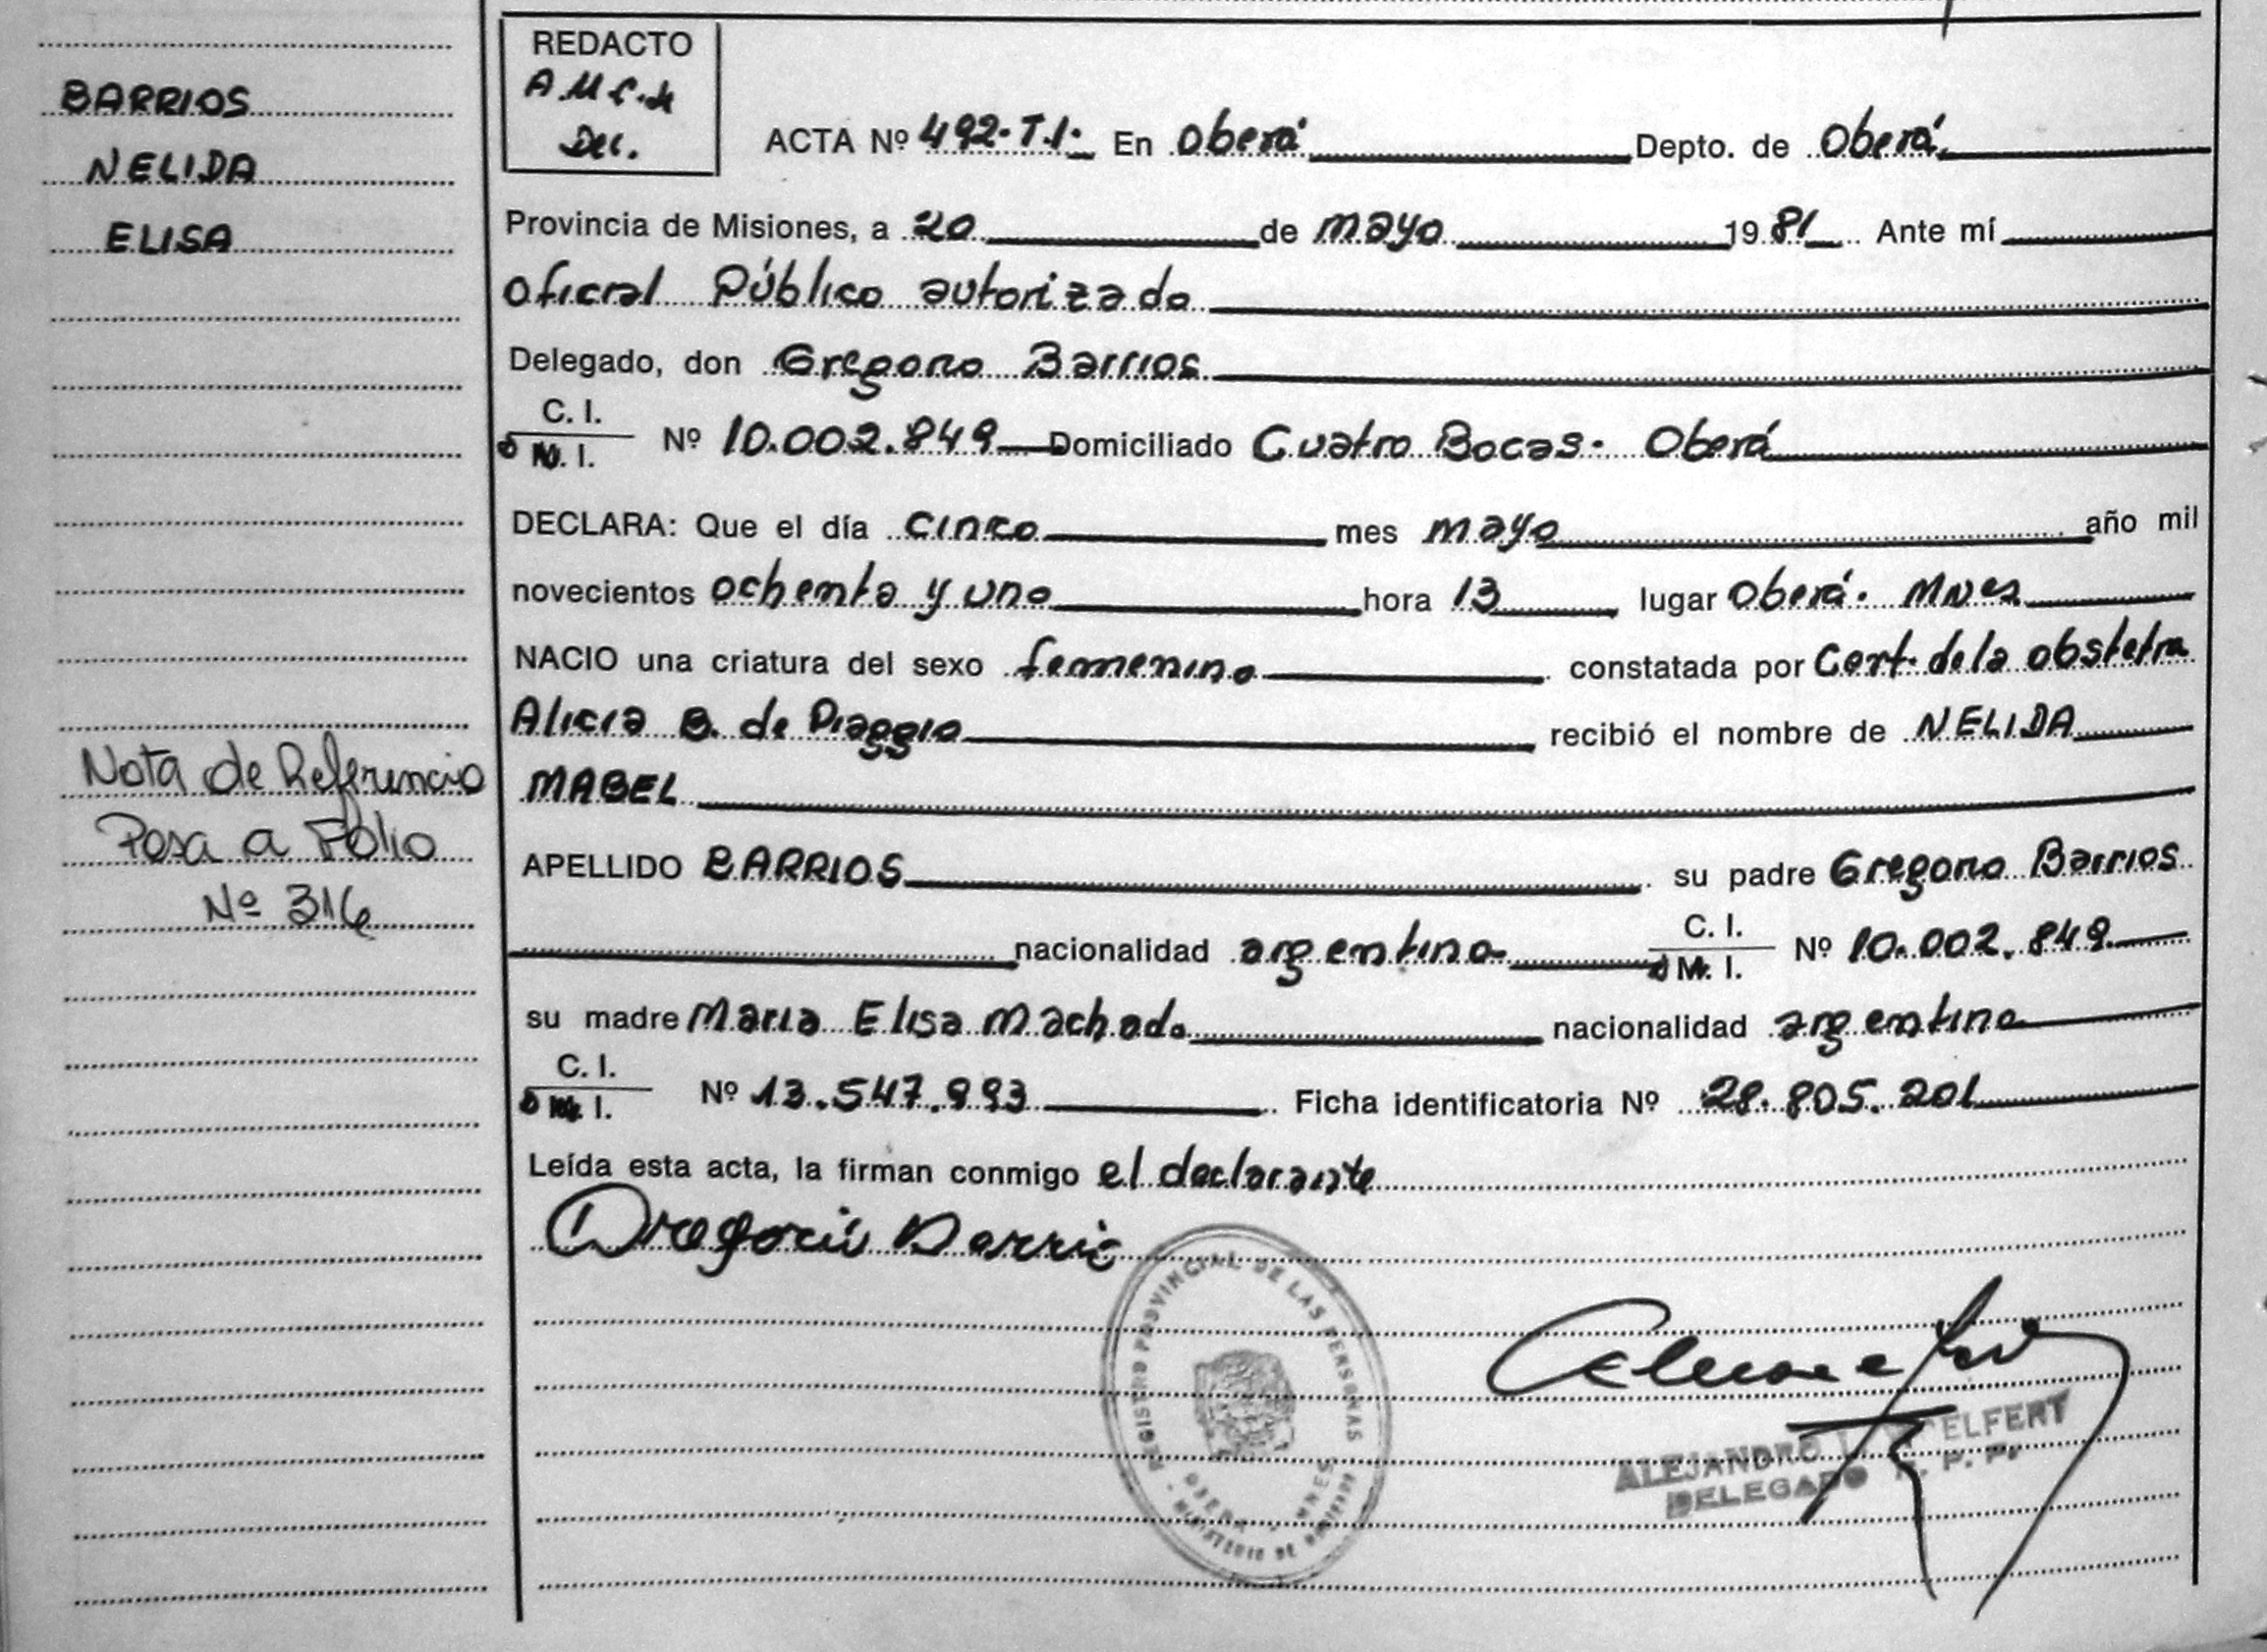 BARRIOS
NELIDA
ELISA
Nota de Referencia
Pasa a Folio
Nº 316
REDACTO
Dec.
ACTA Nº 492-T.I- En Oberá Depto. de Oberá
Provincia de Misiones, a 20 de mayo 1981 Ante mí
Oficial Público autorizado
Delegado, don Gregorio Barrios
C. I.
ó M. I. Nº 10.002.849 Domiciliado Cuatro Bocas- Oberá
DECLARA: Que el día cinco mes mayo año mil
novecientos ochenta y uno hora 13 lugar Oberá- Mnes
NACIO una criatura del sexo femenino constatada por Cert. de la obstetra
Alicia B. de Piaggio recibió el nombre de NELIDA
MABEL
APELLIDO BARRIOS su padre Gregorio Barrios
nacionalidad argentina C. I.
ó M. I. Nº 10.002.849
su madre Maria Elisa Machado nacionalidad argentina
C. I.
ó M. I. Nº 13.547.993 Ficha identificatoria Nº 28.805.201
Leída esta acta, la firman conmigo el declarante
Gregorio Barrio
REGISTRO PROVINCIAL DE LAS PERSONAS
OBERA - MNES
MINISTERIO DE GOBIERNO
ALEJANDRO ELFERT
DELEGADO R. P. P.